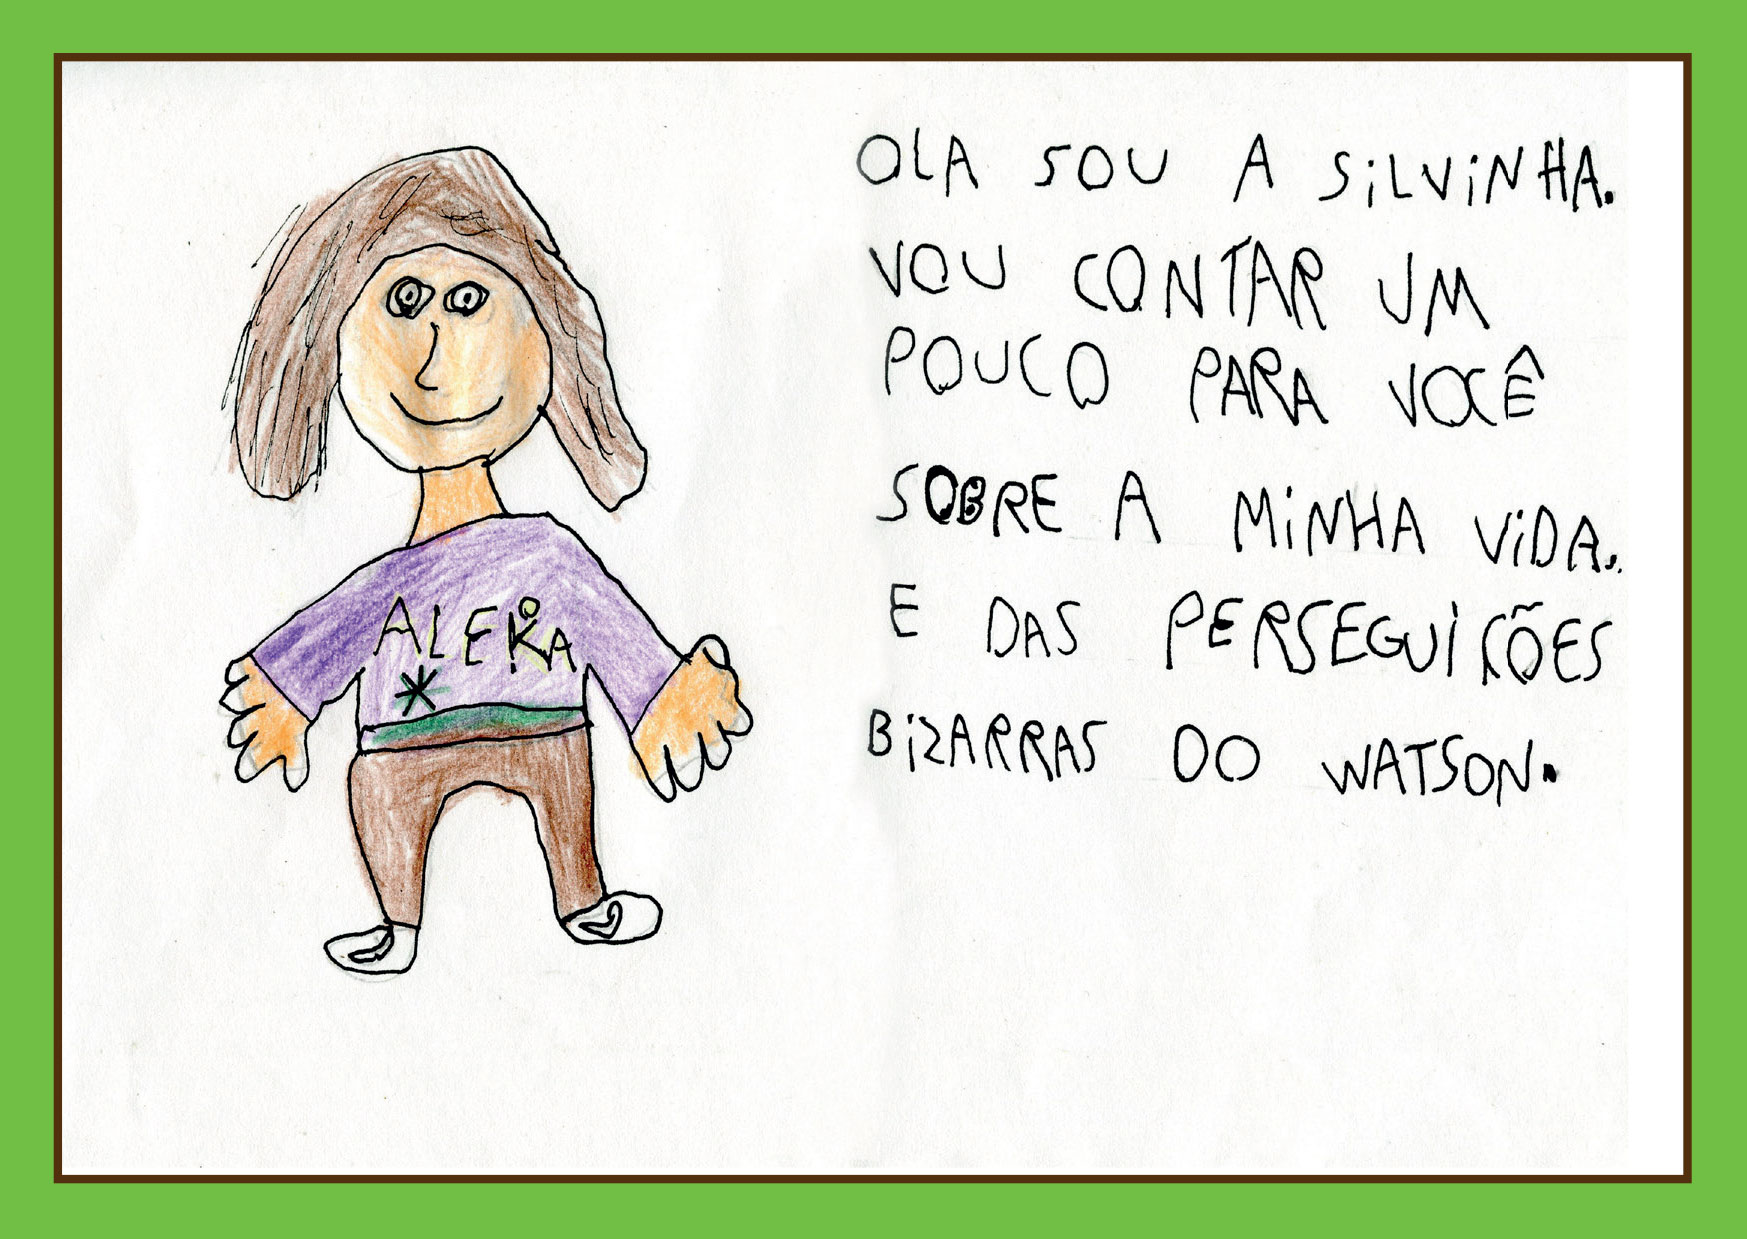 OLA SOU A SiLViNHA.
VOU CONTAR UM
POUCO PARA VOCÊ
SOBRE A MiNHA ViDA.
E DAS PERSEGUiÇÕES
BiZARRAS DO WATSON.